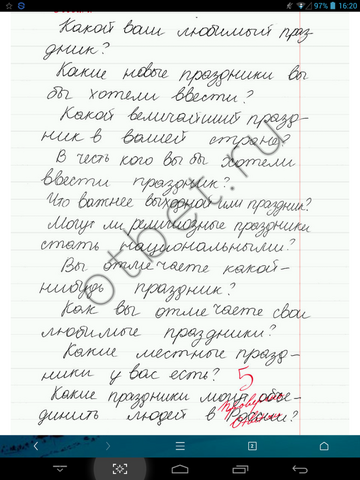 97% 16:20
Какой ваш любимый праз
дник?
Какие новые праздники вы
бы хотели ввести?
Какой величайший празд-
ник в вашей стране?
В честь кого вы бы хотели
ввести праздник?
Что важнее выходной или праздник?
Могут ли религиозные праздники
стать национальными?
Вы отмечаете какой-
нибудь праздник?
Как вы отмечаете свои
любимые праздники?
Какие местные празд-
ники у вас есть?
5
Какие праздники могут объе-
динить людей в
otbet.ru
2